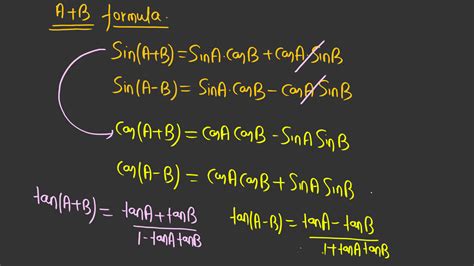 A+B formula.
Sin(A+B)=SinA.CosB+CosA.SinB
Sin(A-B) = SinA.CosB-CosA SinB
Cos(A+B) = CosA CosB - SinA SinB
Cos(A-B) = CosA CosB + SinA SinB
tan(A+B) = tanA+tanB / 1-tanAtanB
tan(A-B) = tanA-tanB / 1+tanAtanB